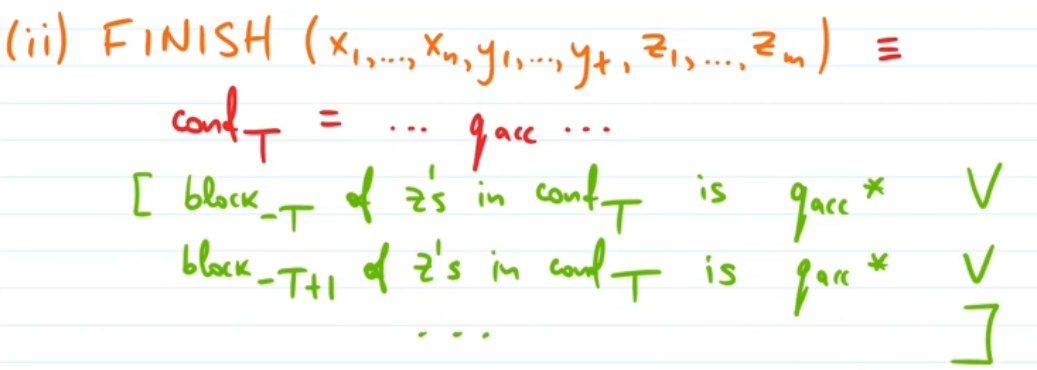 (ii) FINISH (x₁,..., xₙ, y₁,..., yₜ, z₁,..., zₘ) ≡
conf_T = ... q_acc ...
[ block_-T of z's in conf_T is q_acc * ∨
block_-T+1 of z's in conf_T is q_acc * ∨
... ]